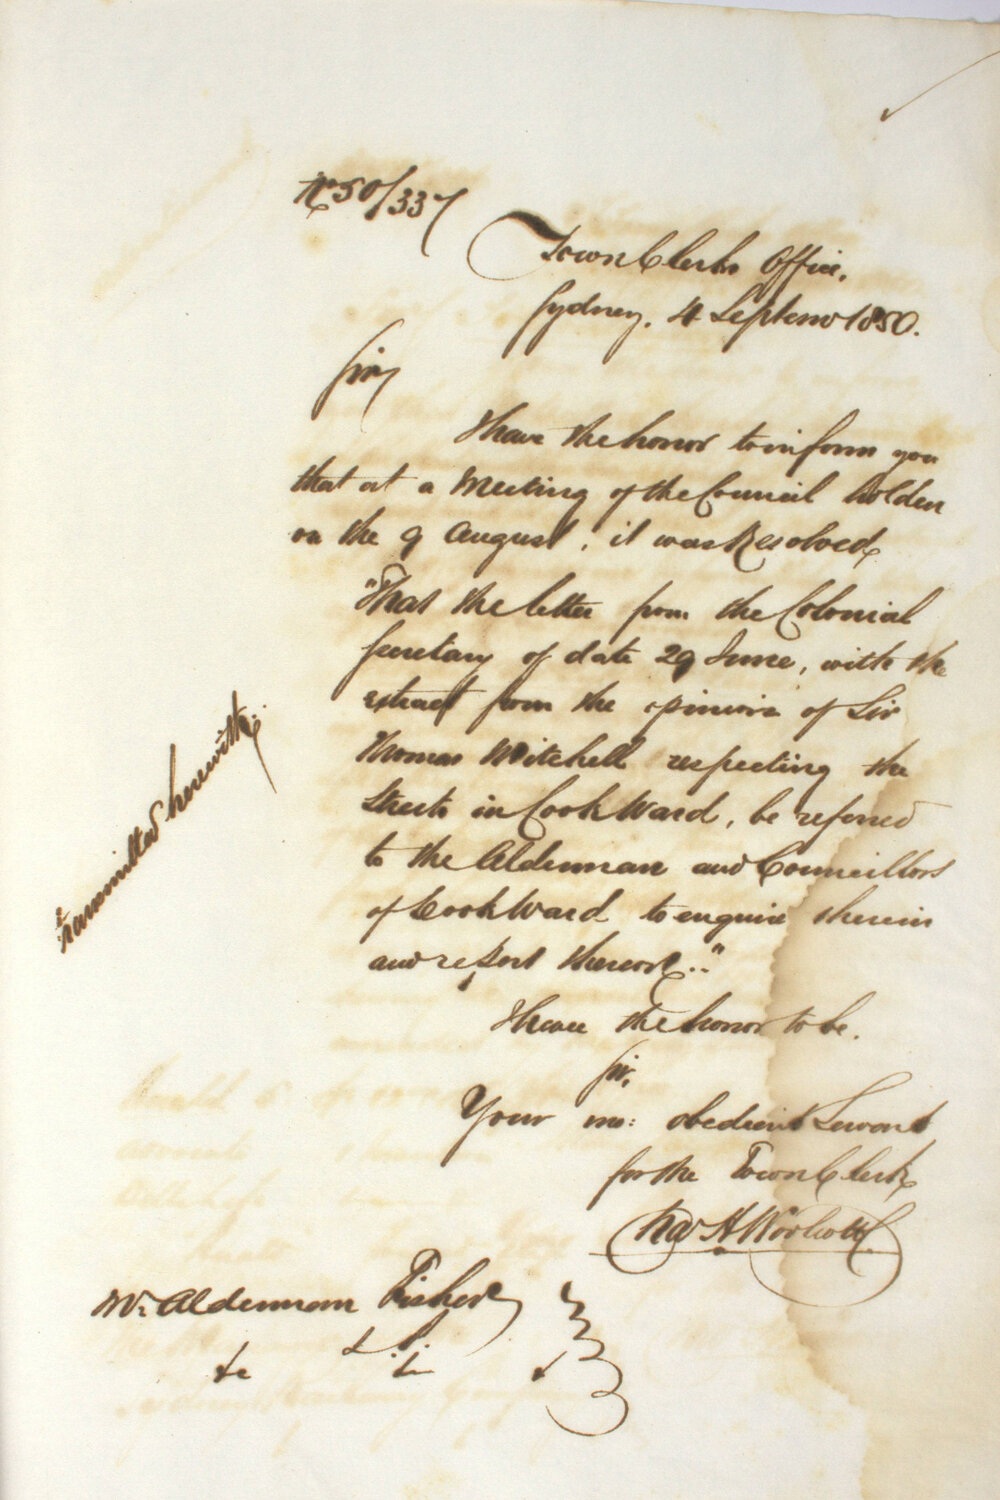 No 50/337
Town Clerks Office,
Sydney, 4 Septemr 1850.
Sir,
I have the honor to inform you
that at a Meeting of the Council holden
on the 9 August, it was Resolved,
"That the letter from the Colonial
Secretary of date 29 June, with the
extract from the opinion of Sir
Thomas Mitchell respecting the
Streets in Cook Ward, be referred
to the Alderman and Councillors
of Cook Ward to enquire therein
and report thereon."
transmitted herewith.
I have the honor to be.
Sir,
Your mo: obedient Servant
for the Town Clerk
Chas H Woolcott
Mr. Alderman Fisher
&c &c &c